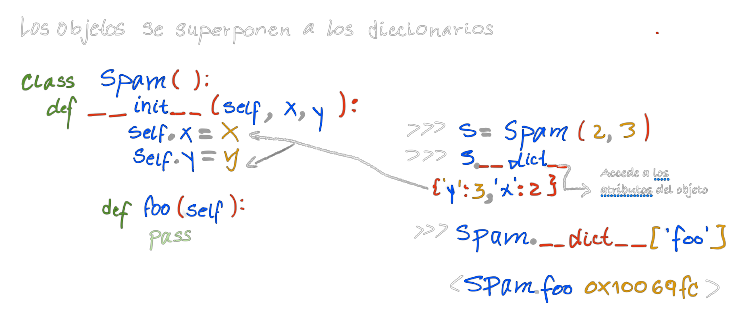 Los objetos se superponen a los diccionarios
class Spam():
def __init__(self, x, y):
self.x = x
self.y = y
def foo(self):
pass
>>> s = Spam(2,3)
>>> s.__dict__
{'y':3,'x':2}
Accede a los
atributos del objeto
>>> Spam.__dict__['foo']
<Spam.foo 0x10069fc>